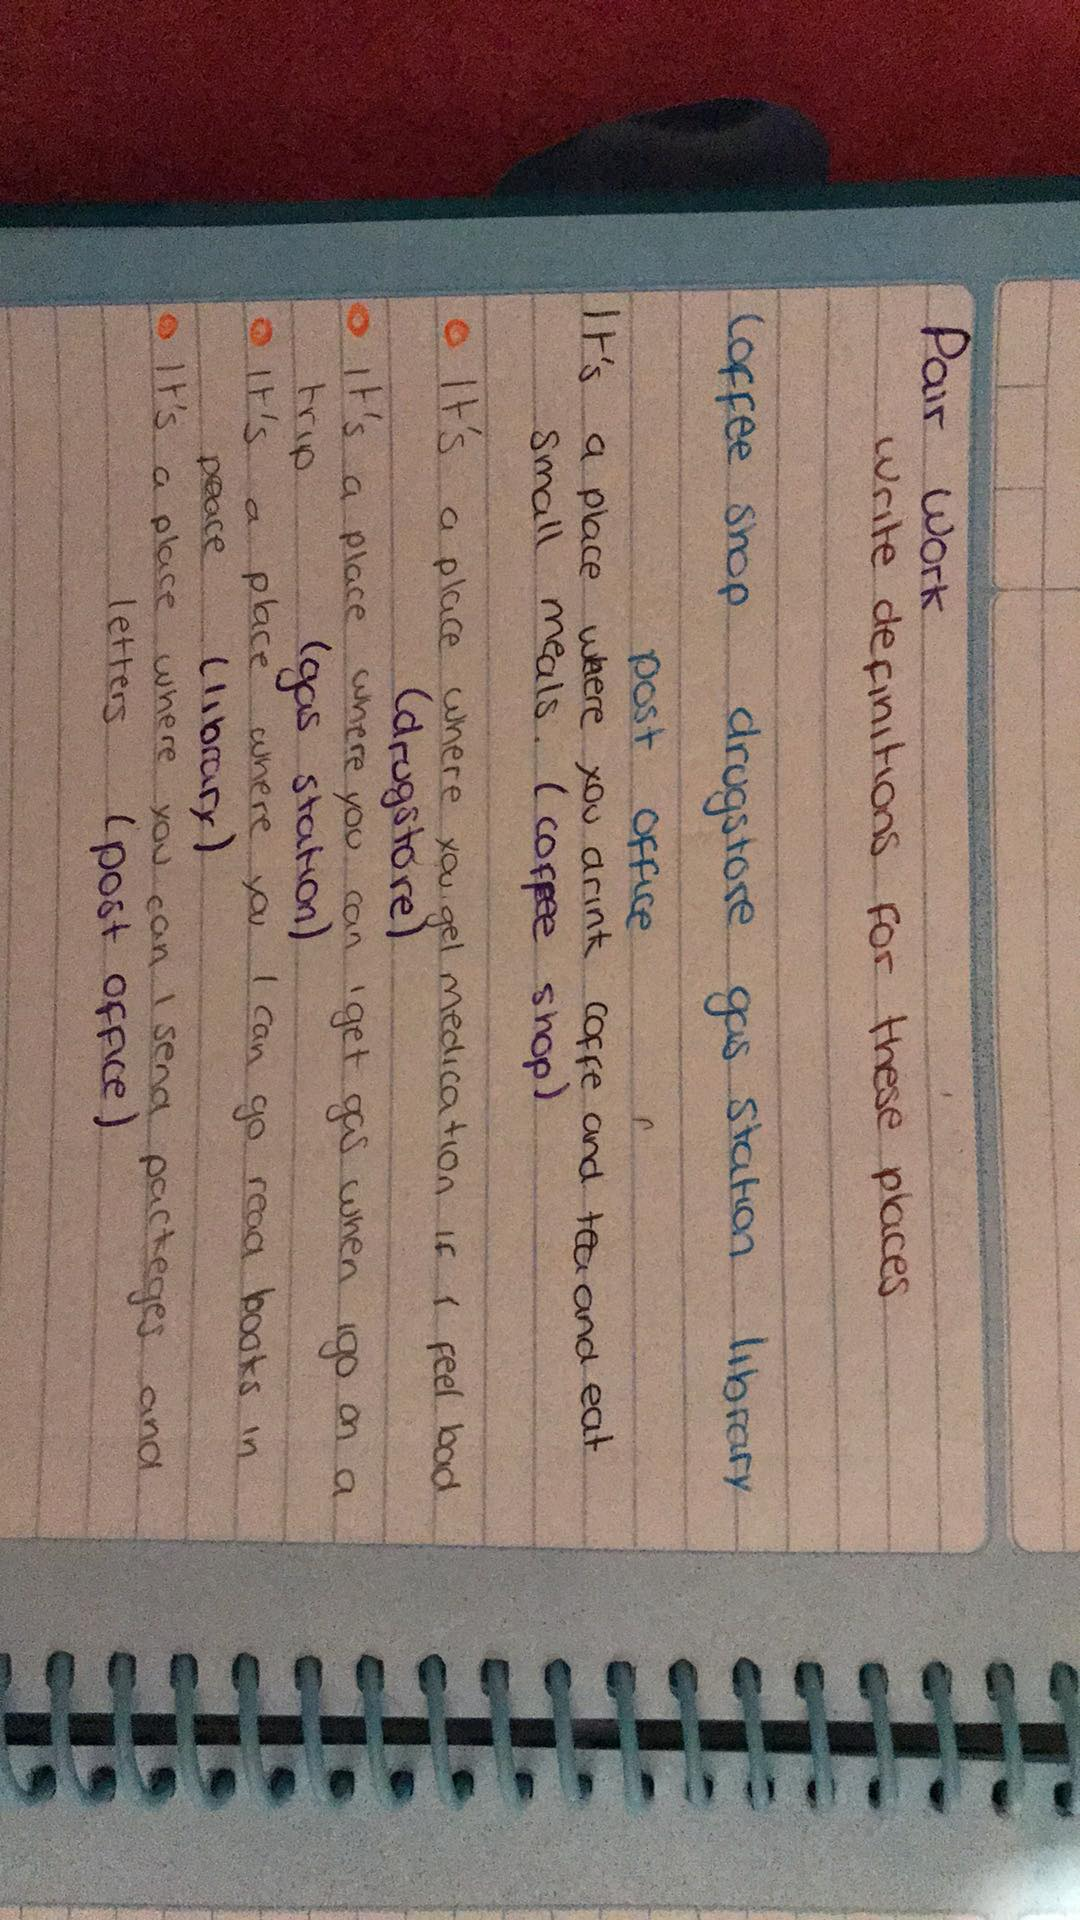 Pair Work
write definitions for these places
Coffee shop drugstore gas station library
post office
It's a place where you drink coffe and tea and eat
small meals. (coffee shop)
It's a place where you gel medication if I feel bad
(drugstore)
It's a place where you can 'get gas when I go on a
trip (gas station)
It's a place where you I can go read books in
peace (library)
It's a place where you can I send packeges and
letters (post office)